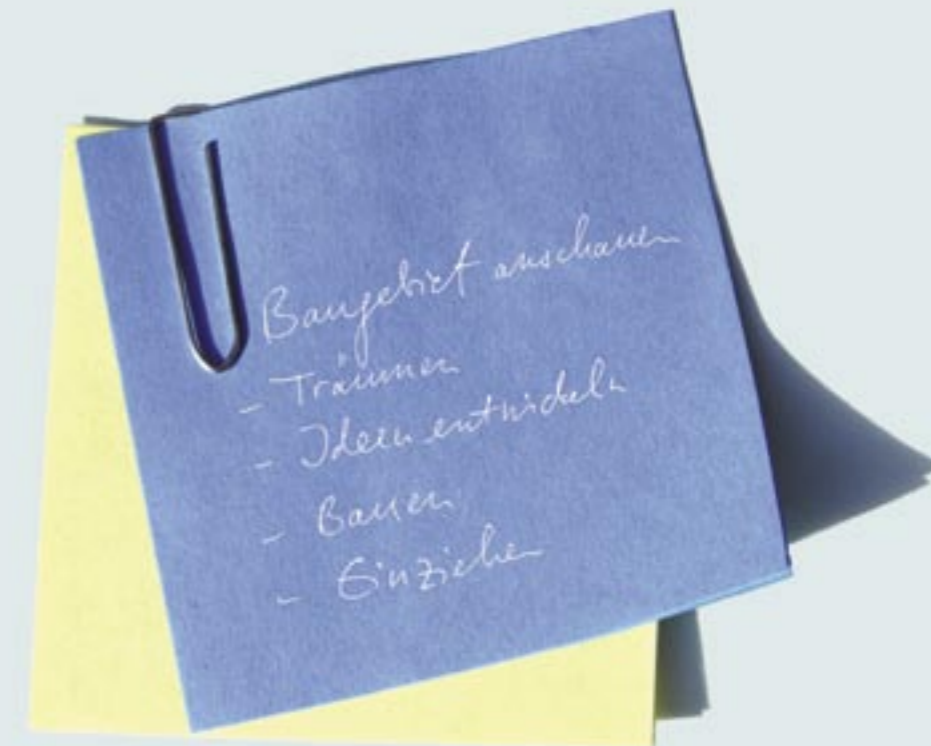 Baugebiet anschauen
- Träumen
- Ideen entwickeln
- Bauen
- Einziehen